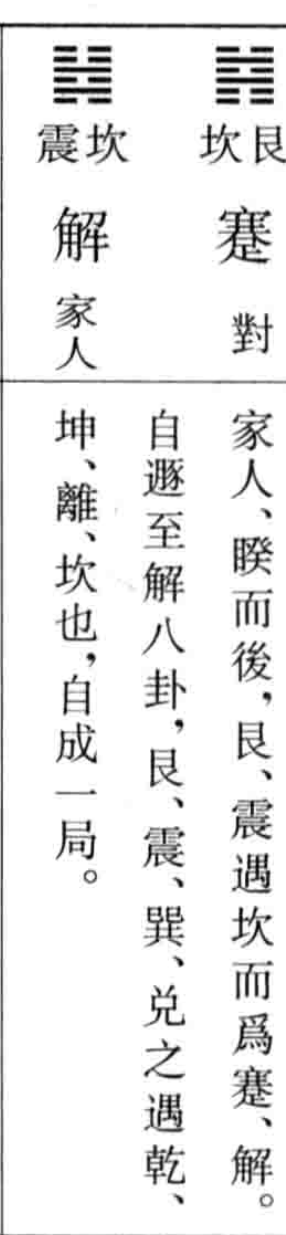 艮坎
蹇 對
坎震
解 家人
家人、睽而後，艮、震遇坎而爲蹇、解。
自遯至解八卦，艮、震、巽、兑之遇乾、
坤、離、坎也，自成一局。